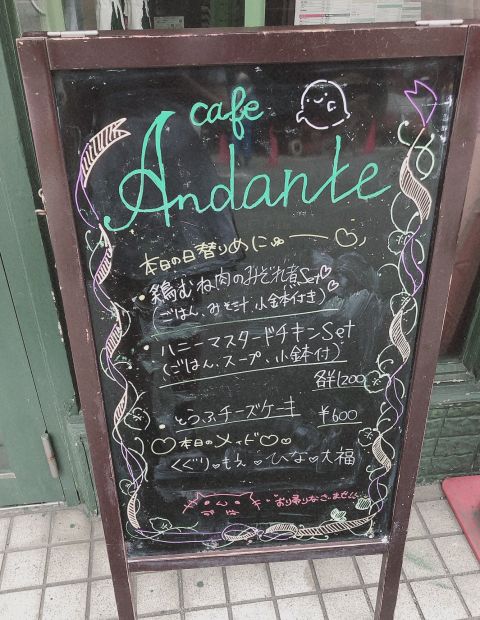 cafe
Andante
本日の日替りめにゅー
・鶏むね肉のみぞれ煮Set
(ごはん、みそ汁、小鉢付き)
・ハニーマスタードチキンSet
(ごはん、スープ、小鉢付)
各¥1200
・とうふチーズケーキ ¥600
♡本日のメイド♡♡
くぐり♡もえ♡ひな♡大福
おり帰りなさいませ!!